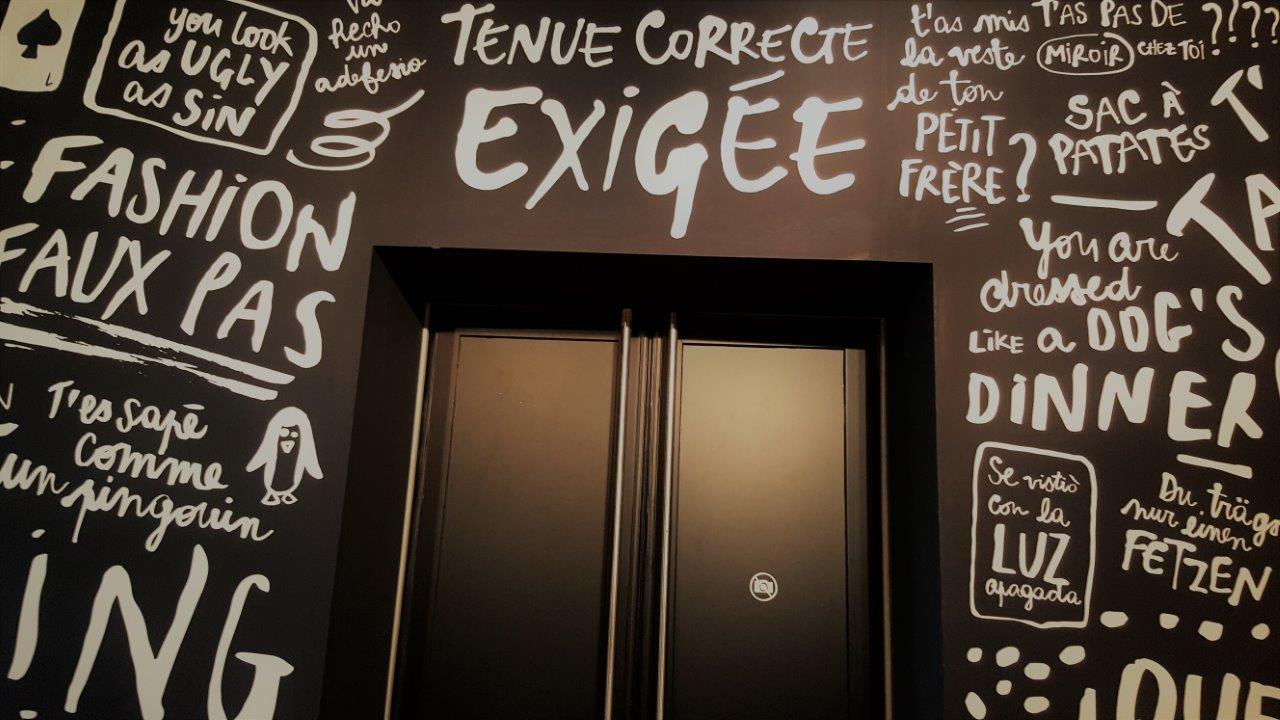 you look
as UGLY
as SIN
hecho
un
adefesio
FASHION
FAUX PAS
T'es sapé
comme
un pingouin
ING
TENUE CORRECTE
EXIGÉE
t'as mis
la veste
de ton
PETIT
FRÈRE?
T'AS PAS DE
MIROIR CHEZ TOI ?!??
SAC À
PATATES
You are
dressed
LIKE a DOG'S
DINNER
Se vistió
con la
LUZ
apagada
Du trägs
nur einen
FETZEN
¡QUE